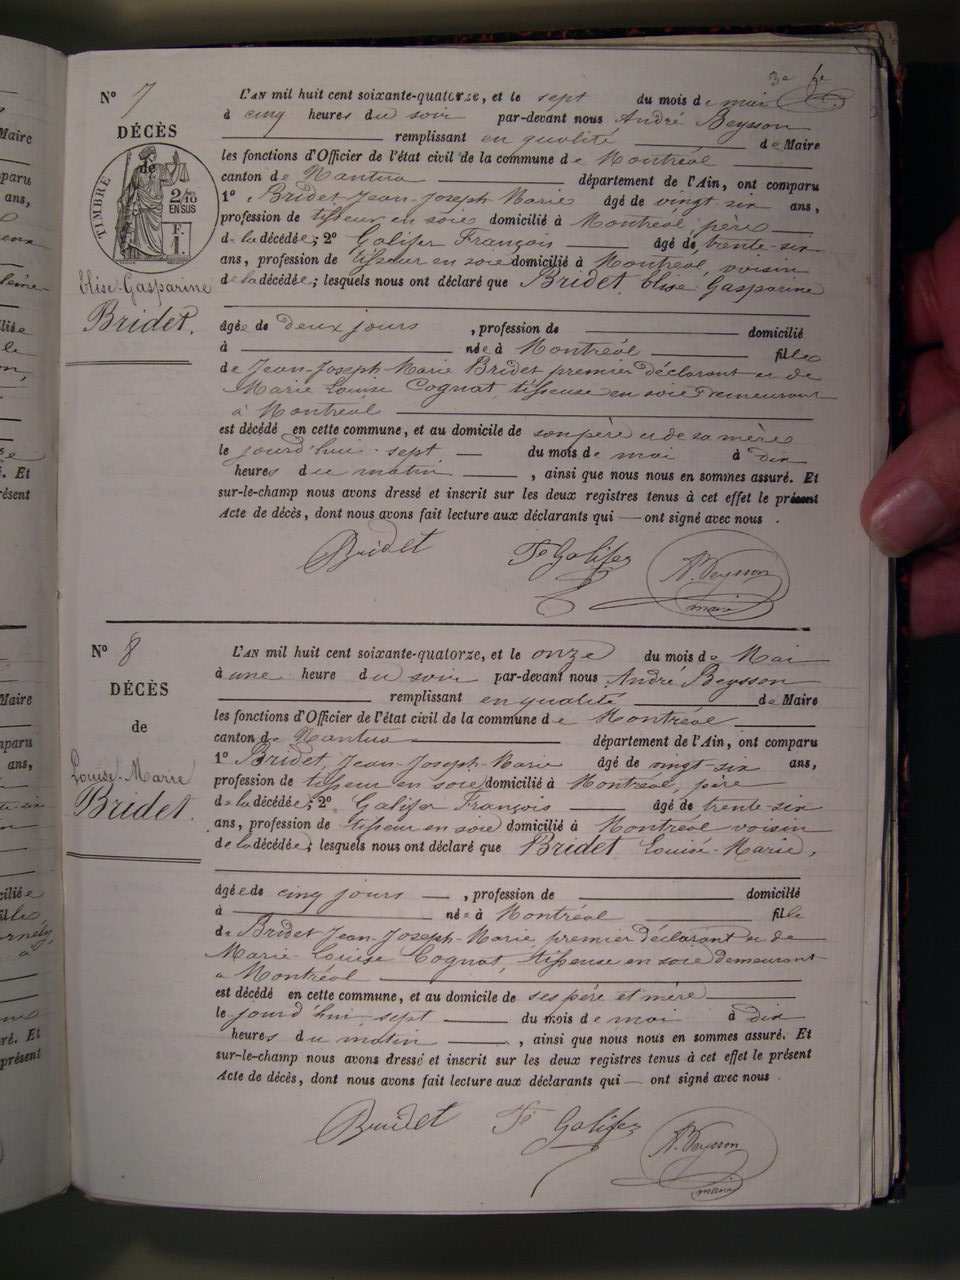 3e fe
N° 7
DÉCÈS
de
TIMBRE
2/10
EN SUS
F.
1.
Elise-Gasparine
Bridet.
L'AN mil huit cent soixante-quatorze, et le sept du mois de mai
à cinq heures du soir par-devant nous André Beysson
remplissant en qualité de Maire
les fonctions d'Officier de l'état civil de la commune de Montréal
canton de Nantua département de l'Ain, ont comparu
1° Bridet Jean-Joseph-Marie âgé de vingt six ans,
profession de tisseur en soie domicilié à Montréal, père
de la décédée; 2° Galifer François âgé de trente-six
ans, profession de tisseur en soie domicilié à Montréal, voisin
de la décédée; lesquels nous ont déclaré que Bridet, Elise Gasparine
âgée de deux jours, profession de domicilié
à née à Montréal fille
de Jean-Joseph-Marie Bridet premier déclarant et de
Marie Louise Cognat, tisseuse en soie demeurant
à Montréal
est décédé en cette commune, et au domicile de son père et de sa mère
le jourd'hui sept du mois de mai à dix
heures du matin, ainsi que nous nous en sommes assuré. Et
sur-le-champ nous avons dressé et inscrit sur les deux registres tenus à cet effet le présent
Acte de décès, dont nous avons fait lecture aux déclarants qui ont signé avec nous.
Bridet Fs Galifer A. Beysson
maire
N° 8
DÉCÈS
de
Louise-Marie
Bridet.
L'AN mil huit cent soixante-quatorze, et le onze du mois de Mai
à une heure du soir par-devant nous André Beysson
remplissant en qualité de Maire
les fonctions d'Officier de l'état civil de la commune de Montréal
canton de Nantua département de l'Ain, ont comparu
1° Bridet, Jean-Joseph-Marie âgé de vingt-six ans,
profession de tisseur en soie domicilié à Montréal, père
de la décédée; 2° Galifer François âgé de trente-six
ans, profession de tisseur en soie domicilié à Montréal voisin
de la décédée; lesquels nous ont déclaré que Bridet Louise-Marie,
âgée de cinq jours, profession de domicilié
à née à Montréal fille
de Bridet Jean-Joseph-Marie, premier déclarant et de
Marie-Louise Cognat, tisseuse en soie demeurant
à Montréal
est décédé en cette commune, et au domicile de ses père et mère
le jourd'hui, sept du mois de mai à dix
heures du matin, ainsi que nous nous en sommes assuré. Et
sur-le-champ nous avons dressé et inscrit sur les deux registres tenus à cet effet le présent
Acte de décès, dont nous avons fait lecture aux déclarants qui ont signé avec nous.
Bridet Fs Galifer A. Beysson
maire